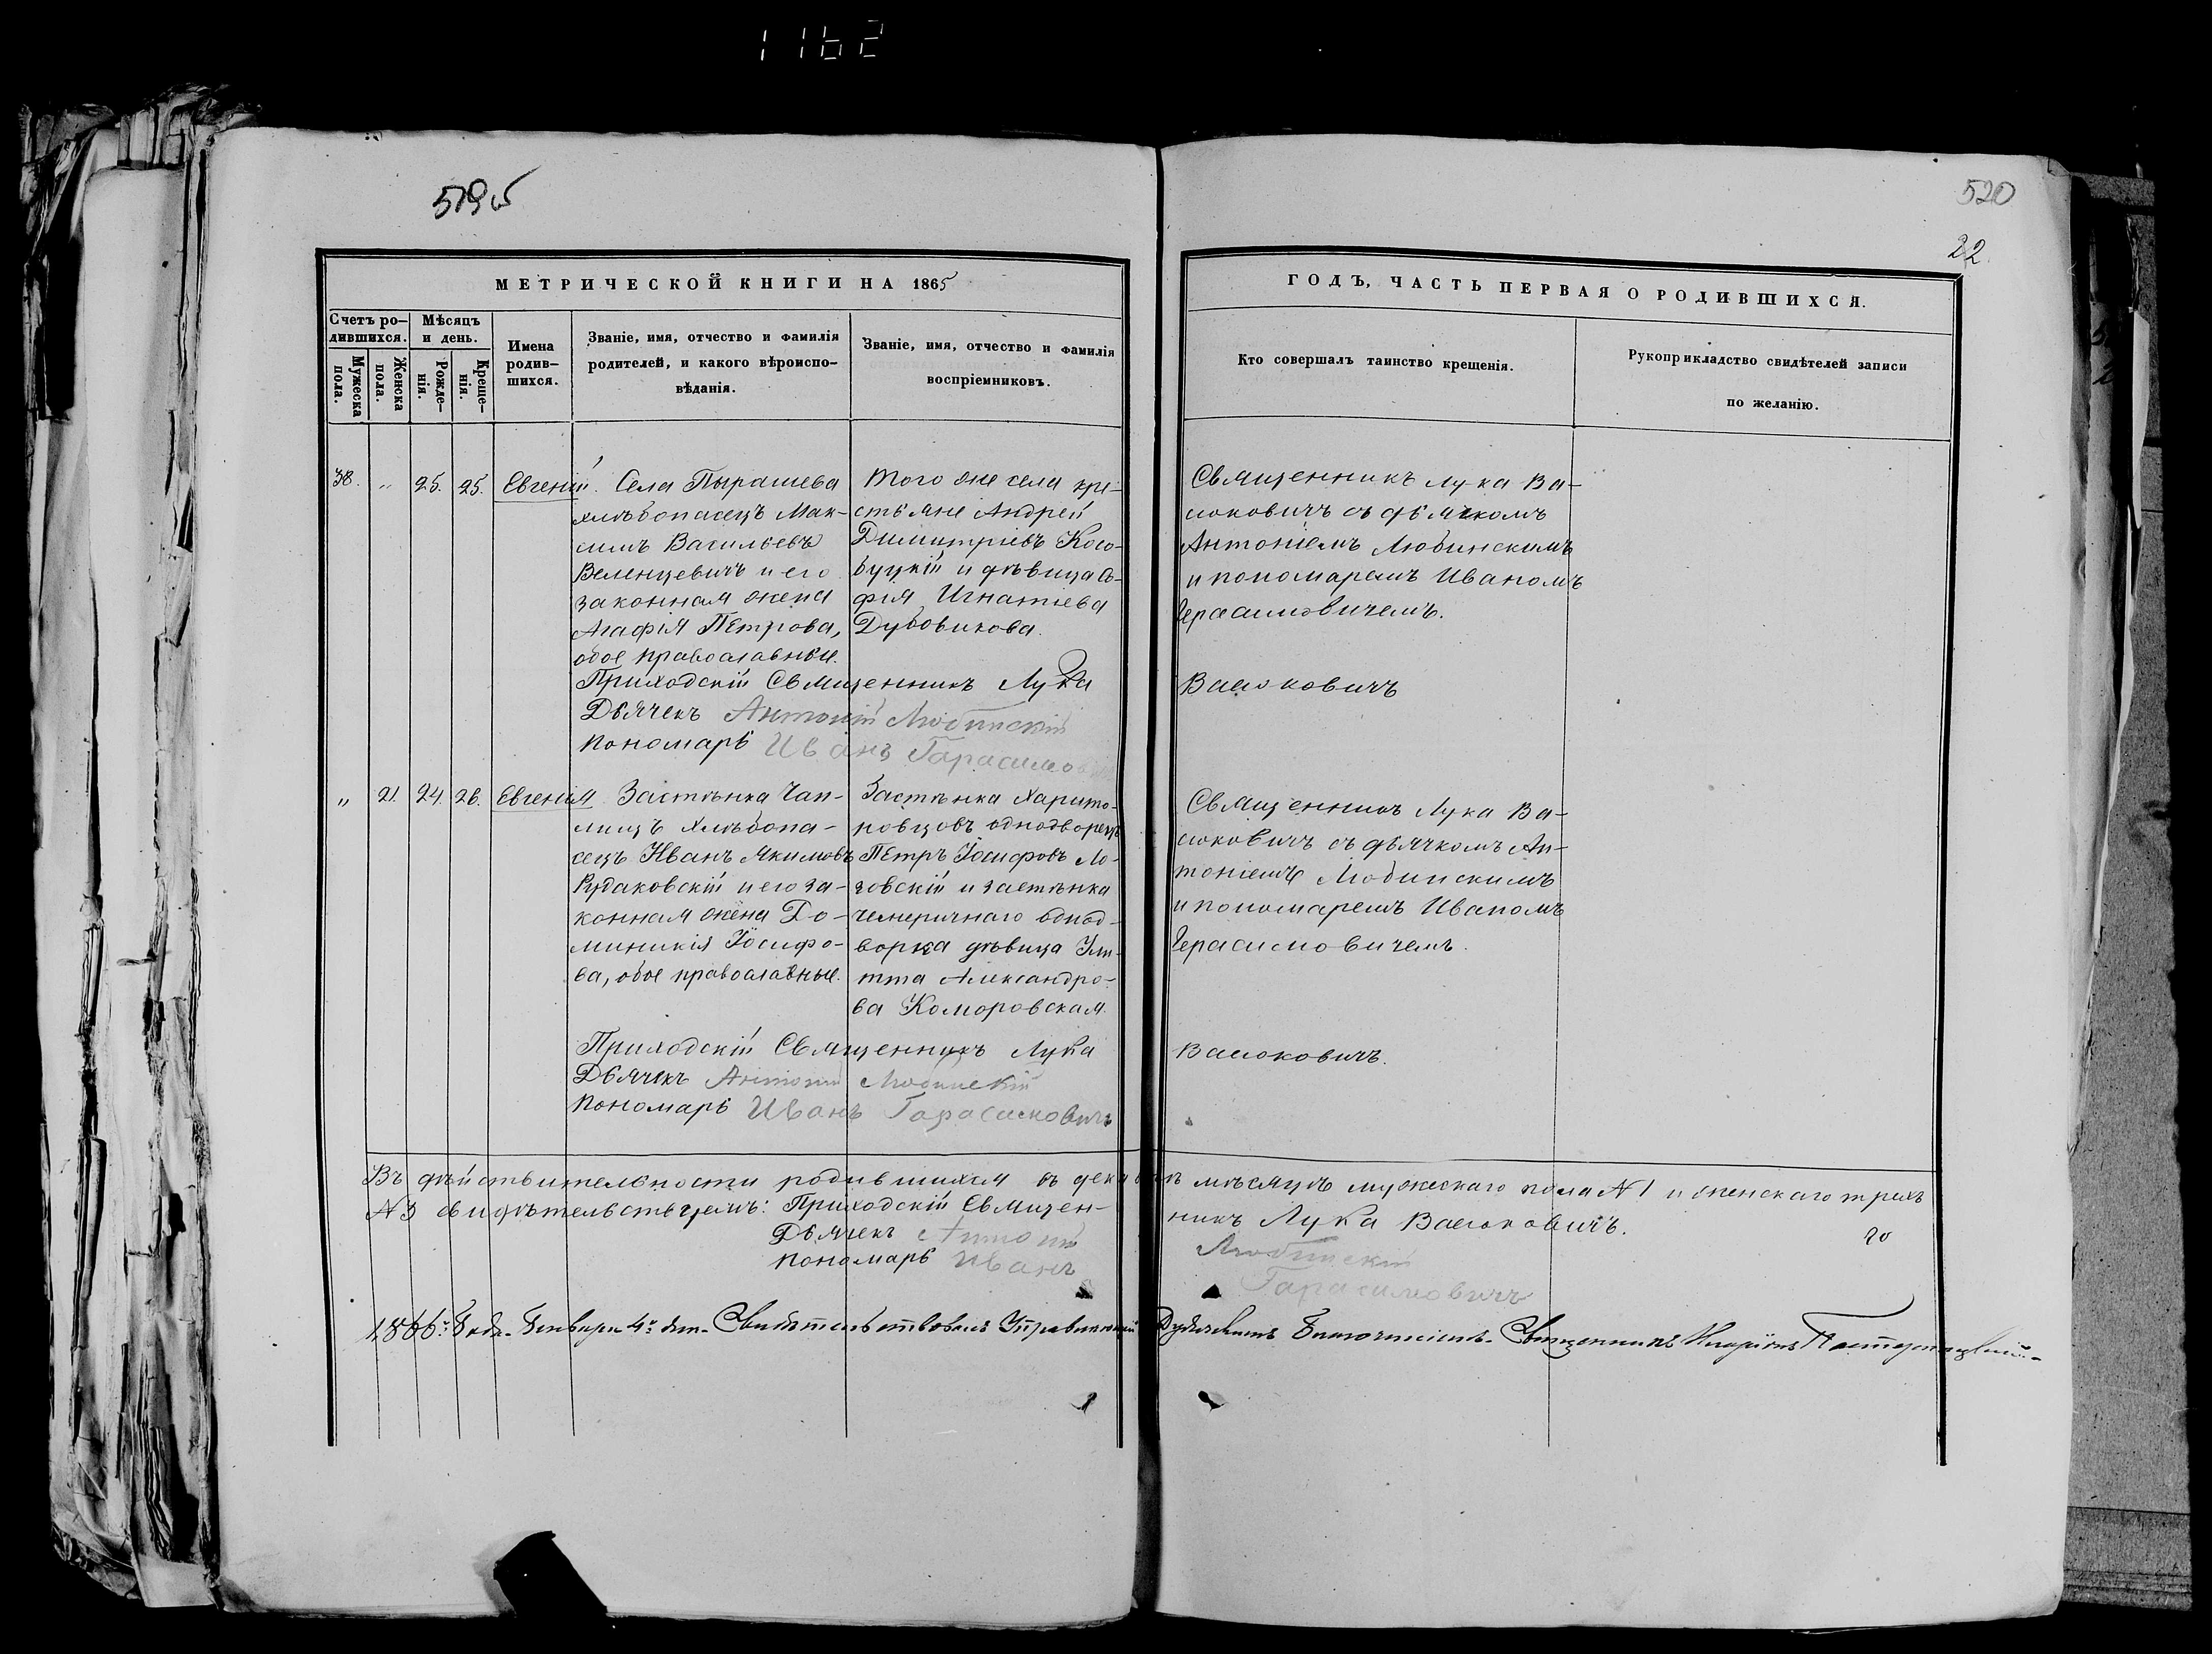 1162
519об
520
22.
МЕТРИЧЕСКОЙ КНИГИ НА 1865
ГОДЪ, ЧАСТЬ ПЕРВАЯ О РОДИВШИХСЯ.
Счетъ ро-
дившихся.
Мужеска
пола.
Женска
пола.
Мѣсяцъ
и день.
Рожде-
нія.
Креще-
нія.
Имена
родив-
шихся.
Званіе, имя, отчество и фамилія
родителей, и какого вѣроиспо-
вѣданія.
Званіе, имя, отчество и фамилія
воспріемниковъ.
Кто совершалъ таинство крещенія.
Рукоприкладство свидѣтелей записи
по желанію.
38. „ 25. 25. Евгеній.
Села Пырашева
хлѣбопасецъ Мак-
симъ Васильевъ
Веленцевичъ и его
законная жена
Агафія Петрова,
обое православные.
Того же села кре-
стьяне Андрей
Димитріевъ Косо-
буцкій и дѣвица Со-
фія Игнатіева
Дубовикова.
Священникъ Лука Ва-
сюковичъ съ дьячкомъ
Антоніемъ Любинскимъ
и пономаремъ Иваномъ
Герасимовичемъ.
Приходскій Священникъ Лука Васюковичъ
Дьячекъ Антоній Любинскій
Пономарь Иванъ Гарасимо
„ 21. 24. 26. Евгенія
Застѣнка Чап-
лицъ хлѣбопа-
сецъ Иванъ Якимовъ
Рудаковскій и его за-
конная жена До-
миникія Іосифо-
ва, обое православные.
Застѣнка Харито-
новцовъ однодворецъ
Петръ Іосифовъ Ло-
зовскій и застѣнка
Чемеричнаго однод-
ворка дѣвица
Александро-
ва Коморовская.
Священникъ Лука Ва-
сюковичъ съ дьячкомъ Ан-
тоніемъ Любинскимъ
и пономаремъ Иваномъ
Герасимовичемъ.
Приходскій Священникъ Лука Васюковичъ.
Дьячекъ Антоній Любинскій
Пономарь Иванъ Гарасимовичъ
Въ дѣйствительности родившихся въ декабрѣ мѣсяцѣ мужескаго пола №1 и женскаго трехъ
№3 свидѣтельствуемъ: Приходскій Священникъ Лука Васюковичъ.
Дьячекъ Антоній Любинскій
Пономарь Иванъ Гарасимовичъ
1866го Года Января 4го дня Свидѣтельствовалъ Управляющій Благочиніемъ Священникъ Иларіонъ